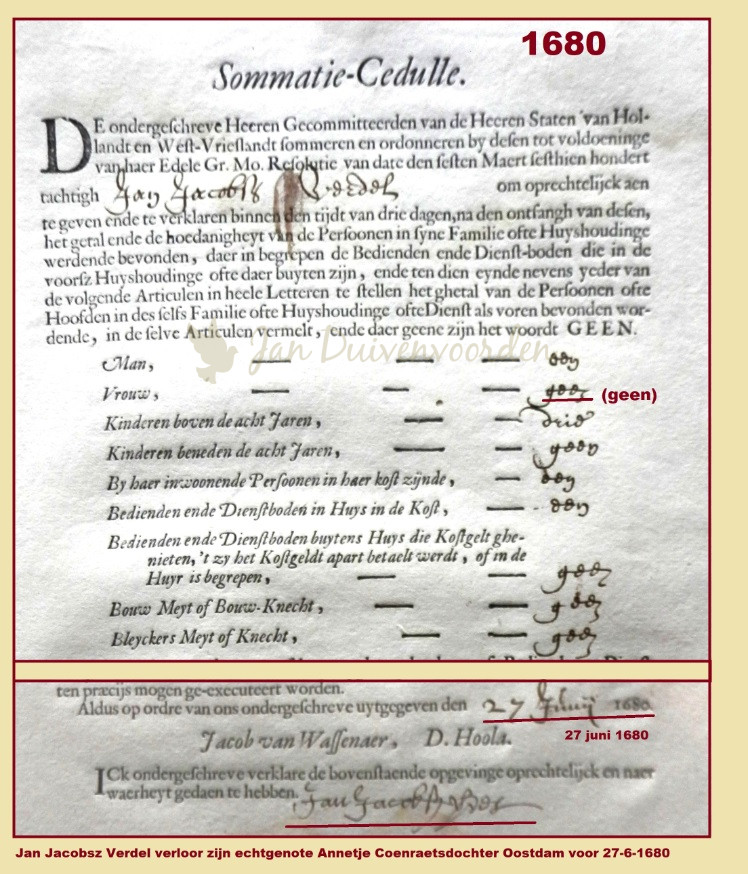 1680
Sommatie-Cedulle.
DE ondergeſchreve Heeren Gecommitteerden van de Heeren Staten van Hol-
landt en Weſt-Vrieſlandt ſommeren en ordonneren by deſen tot voldoeninge
van haer Edele Gr. Mo. Reſolutie van date den ſeſten Maert ſeſthien hondert
tachtigh Jan Jacobſz Verdel om oprechtelijck aen
te geven ende te verklaren binnen den tijdt van drie dagen, na den ontfangh van deſen,
het getal ende de hoedanigheyt van de Perſoonen in ſyne Familie ofte Huyshoudinge
werdende bevonden, daer in begrepen de Bedienden ende Dienſt-boden die in de
voorſz Huyshoudinge ofte daer buyten zijn, ende ten dien eynde nevens yeder van
de volgende Articulen in heele Letteren te ſtellen het ghetal van de Perſoonen ofte
Hoofden in des ſelfs Familie ofte Huyshoudinge ofte Dienſt als voren bevonden wor-
dende, in de ſelve Articulen vermelt, ende daer geene zijn het woordt GEEN.
Jan Duivenvoorden
Man, — — — een
Vrouw, — — — geen (geen)
Kinderen boven de acht Jaren, — — drie
Kinderen beneden de acht Jaren, — — geen
By haer inwoonende Perſoonen in haer koſt zijnde, — een
Bedienden ende Dienſtboden in Huys in de Koſt, — een
Bedienden ende Dienſtboden buytens Huys die Koſtgelt ghe-
nieten, 't zy het Koſtgeldt apart betaelt werdt, of in de
Huyr is begrepen, — — geen
Bouw Meyt of Bouw-Knecht, — — geen
Bleyckers Meyt of Knecht, — — geen
ten præcijs mogen ge-executeert worden.
Aldus op ordre van ons ondergeſchreve uytgegeven den 27 Junij 1680
27 juni 1680
Jacob van Waſſenaer, D. Hoola.
ICk ondergeſchreve verklare de bovenſtaende opgevinge oprechtelijck en naer
waerheyt gedaen te hebben. Jan Jacobſz
Jan Jacobsz Verdel verloor zijn echtgenote Annetje Coenraetsdochter Oostdam voor 27-6-1680